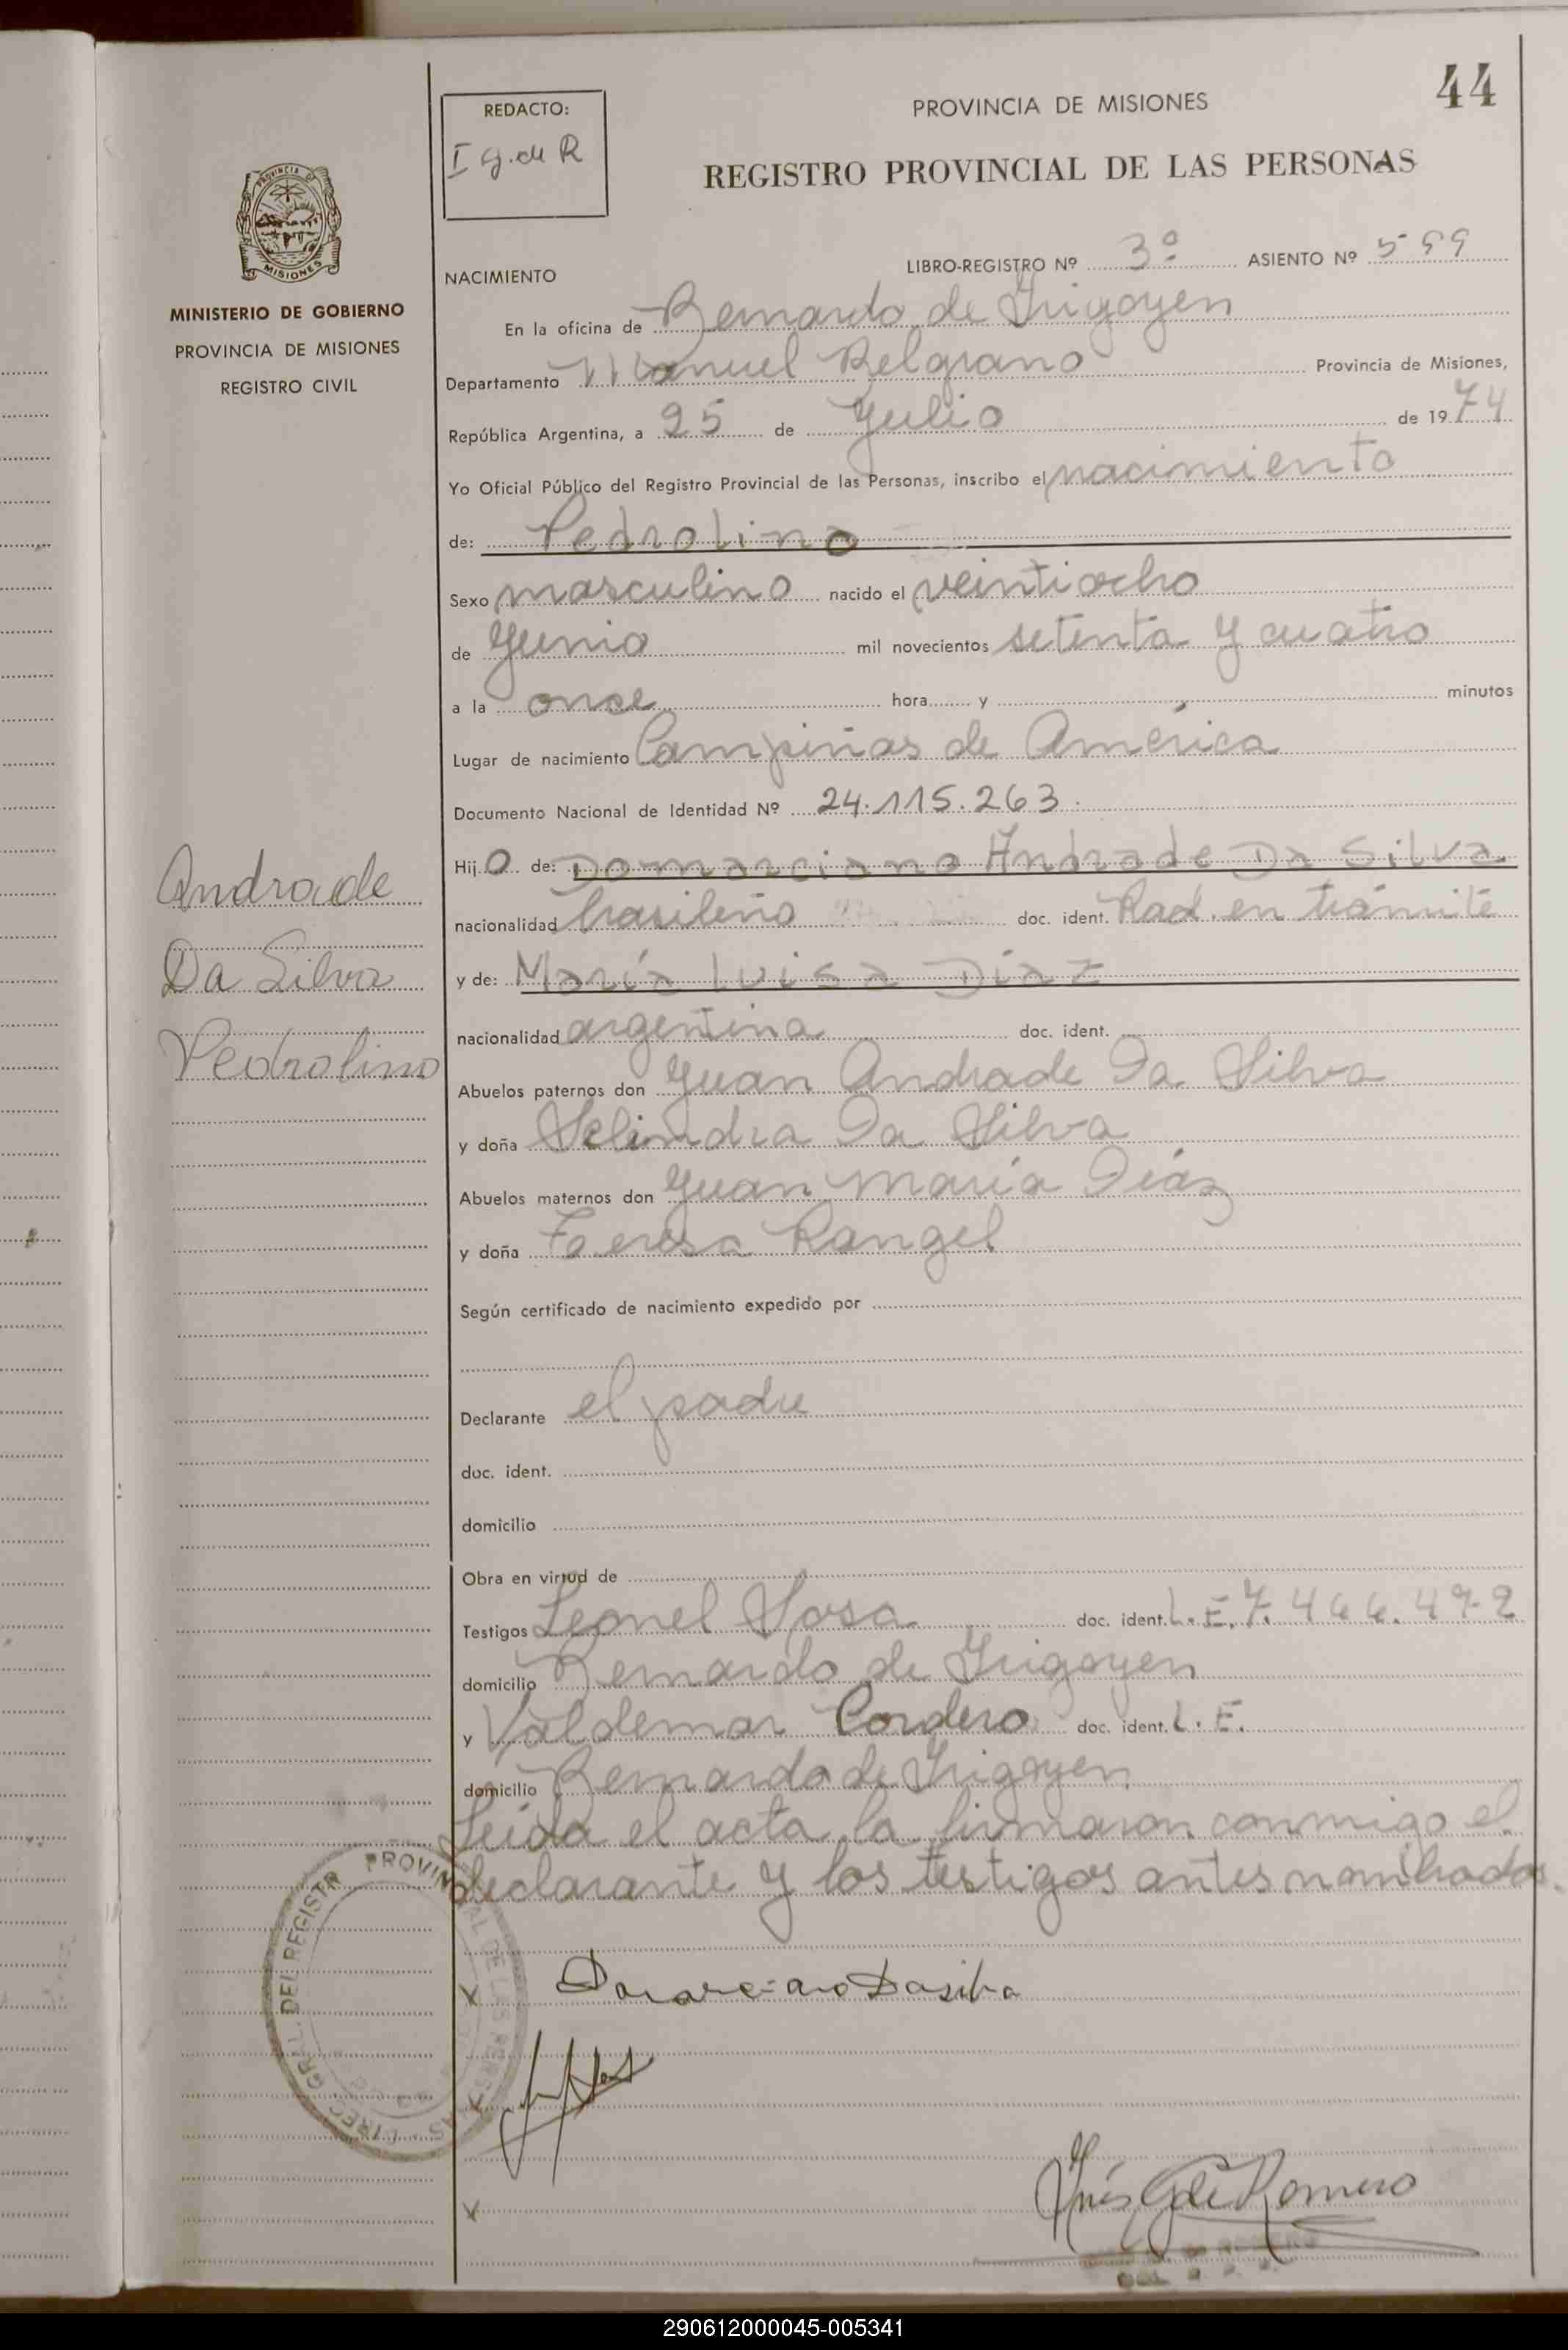 44
REDACTO:
I G. de R
PROVINCIA DE MISIONES
REGISTRO PROVINCIAL DE LAS PERSONAS
PROVINCIA DE
MISIONES
MINISTERIO DE GOBIERNO
PROVINCIA DE MISIONES
REGISTRO CIVIL
NACIMIENTO
LIBRO-REGISTRO Nº 3º ASIENTO Nº 599
En la oficina de Bernardo de Irigoyen
Departamento Manuel Belgrano Provincia de Misiones,
República Argentina, a 25 de Julio de 1974
Yo Oficial Público del Registro Provincial de las Personas, inscribo el nacimiento
de: Pedrolino
Sexo masculino nacido el veintiocho
de Junio mil novecientos setenta y cuatro
a la once hora y minutos
Lugar de nacimiento Campiñas de América
Documento Nacional de Identidad Nº 24.115.263
Hijo de: Domarciano Andrade Da Silva
Andrade
nacionalidad brasileño doc. ident. Rad. en trámite
Da Silva
y de: María Luisa Díaz
Pedrolino
nacionalidad argentina doc. ident.
Abuelos paternos don Juan Andrade Da Silva
y doña Selindra Da Silva
Abuelos maternos don Juan María Díaz
y doña Teresa Rangel
Según certificado de nacimiento expedido por
Declarante el padre
doc. ident.
domicilio
Obra en virtud de
Testigos Leonel Sosa doc. ident. L.E. 7.466.492
domicilio Bernardo de Irigoyen
y Valdemar Cordero doc. ident. L.E.
domicilio Bernardo de Irigoyen
Leída el acta la firmaron conmigo el
declarante y los testigos antes nombrados.
DIREC. GRAL. DEL REGISTR PROVINCIAL DE LAS PERSONAS
X Domarciano Dasilva
X
X
Inés G de Romero
290612000045-005341